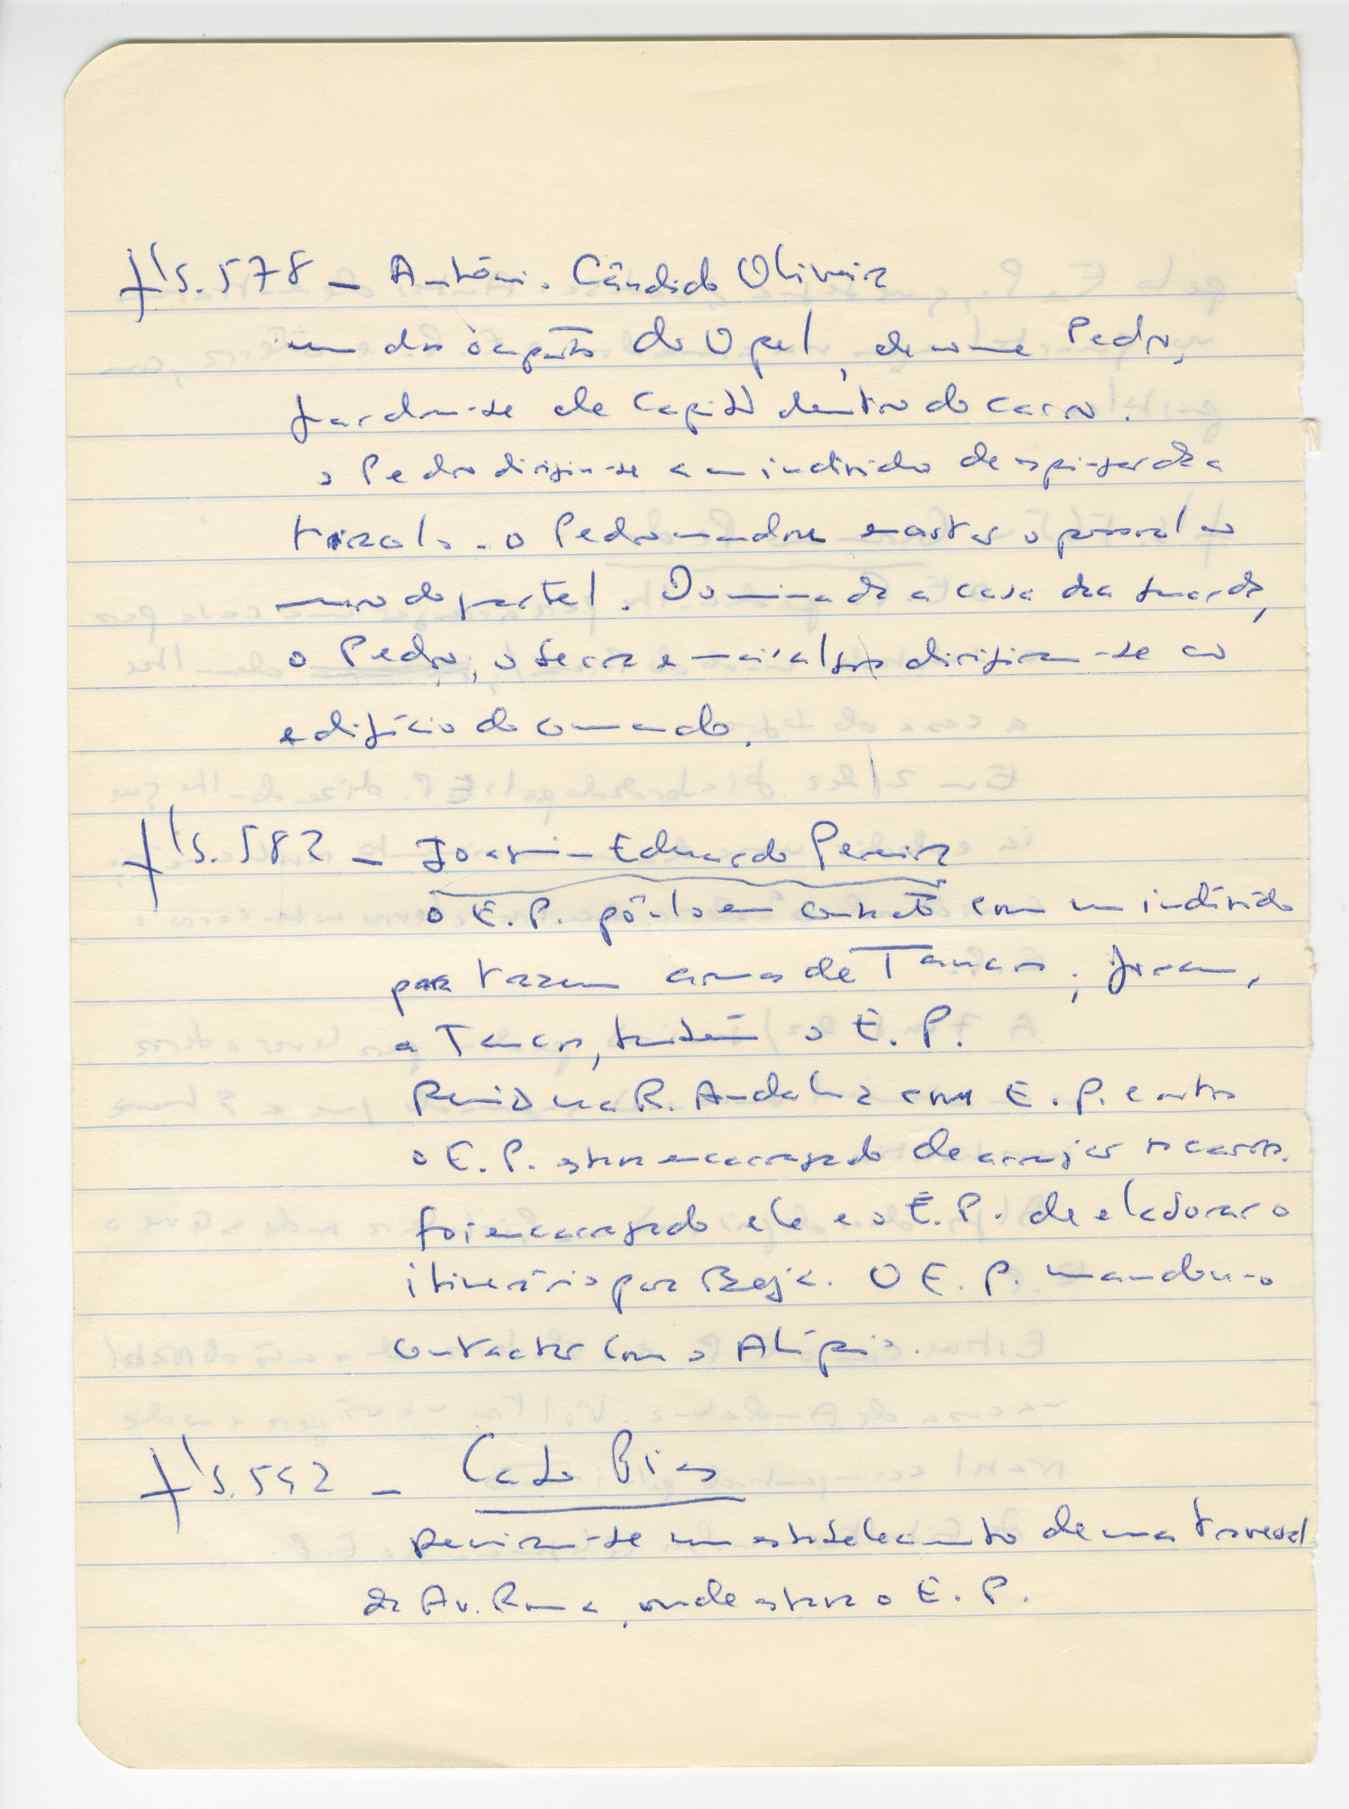 fls. 578 - António Cândido Oliveira
um dos ocupantes do Opel, de nome Pedro,
fardou-se de Capitão dentro do carro.
o Pedro dirigiu-se a um indivíduo de espingarda a
tiracolo. o Pedro mandou encostar o pessoal ao
muro do quartel. Dominada a casa da guarda,
o Pedro, o Serra e mais alguns dirigiram-se ao
edifício do comando.
fls. 582 - Joaquim Eduardo Pereira
o E. P. pô-lo em contacto com um indivíduo
para trazerem armas de Tancos; foram,
a Tancos, também o E. P.
Reunião na R. Andaluz com E. P. e outros
o E. P. estava encarregado de arranjar os carros.
foi encarregado ele e o E. P. de elaborar o
itinerário para Beja. O E. P. mandou-o
contactar com o Alípio.
fls. 592 -
Reuniram-se num estabelecimento de uma travessa
da Av. Roma, onde estava o E. P.